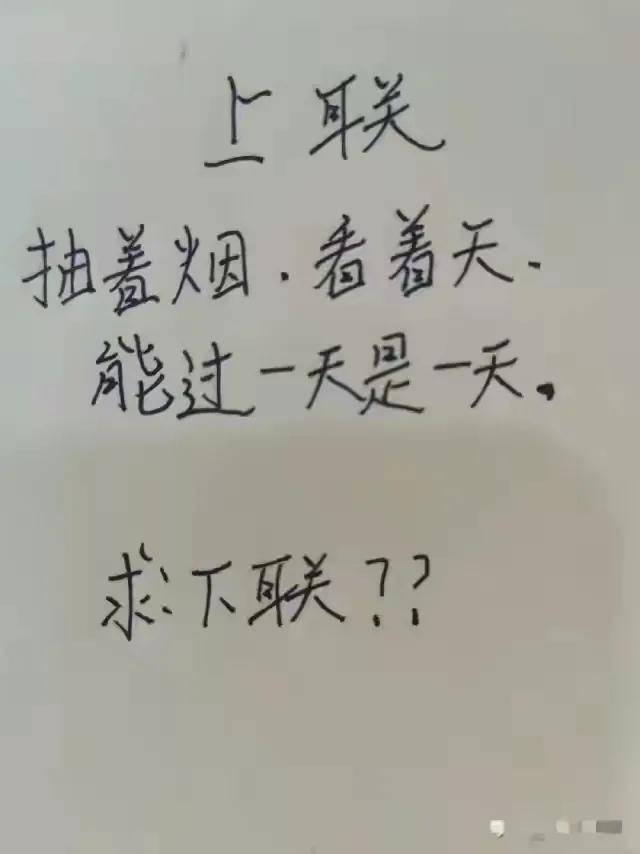 上联
抽着烟.看着天.
能过一天是一天.
求下联??